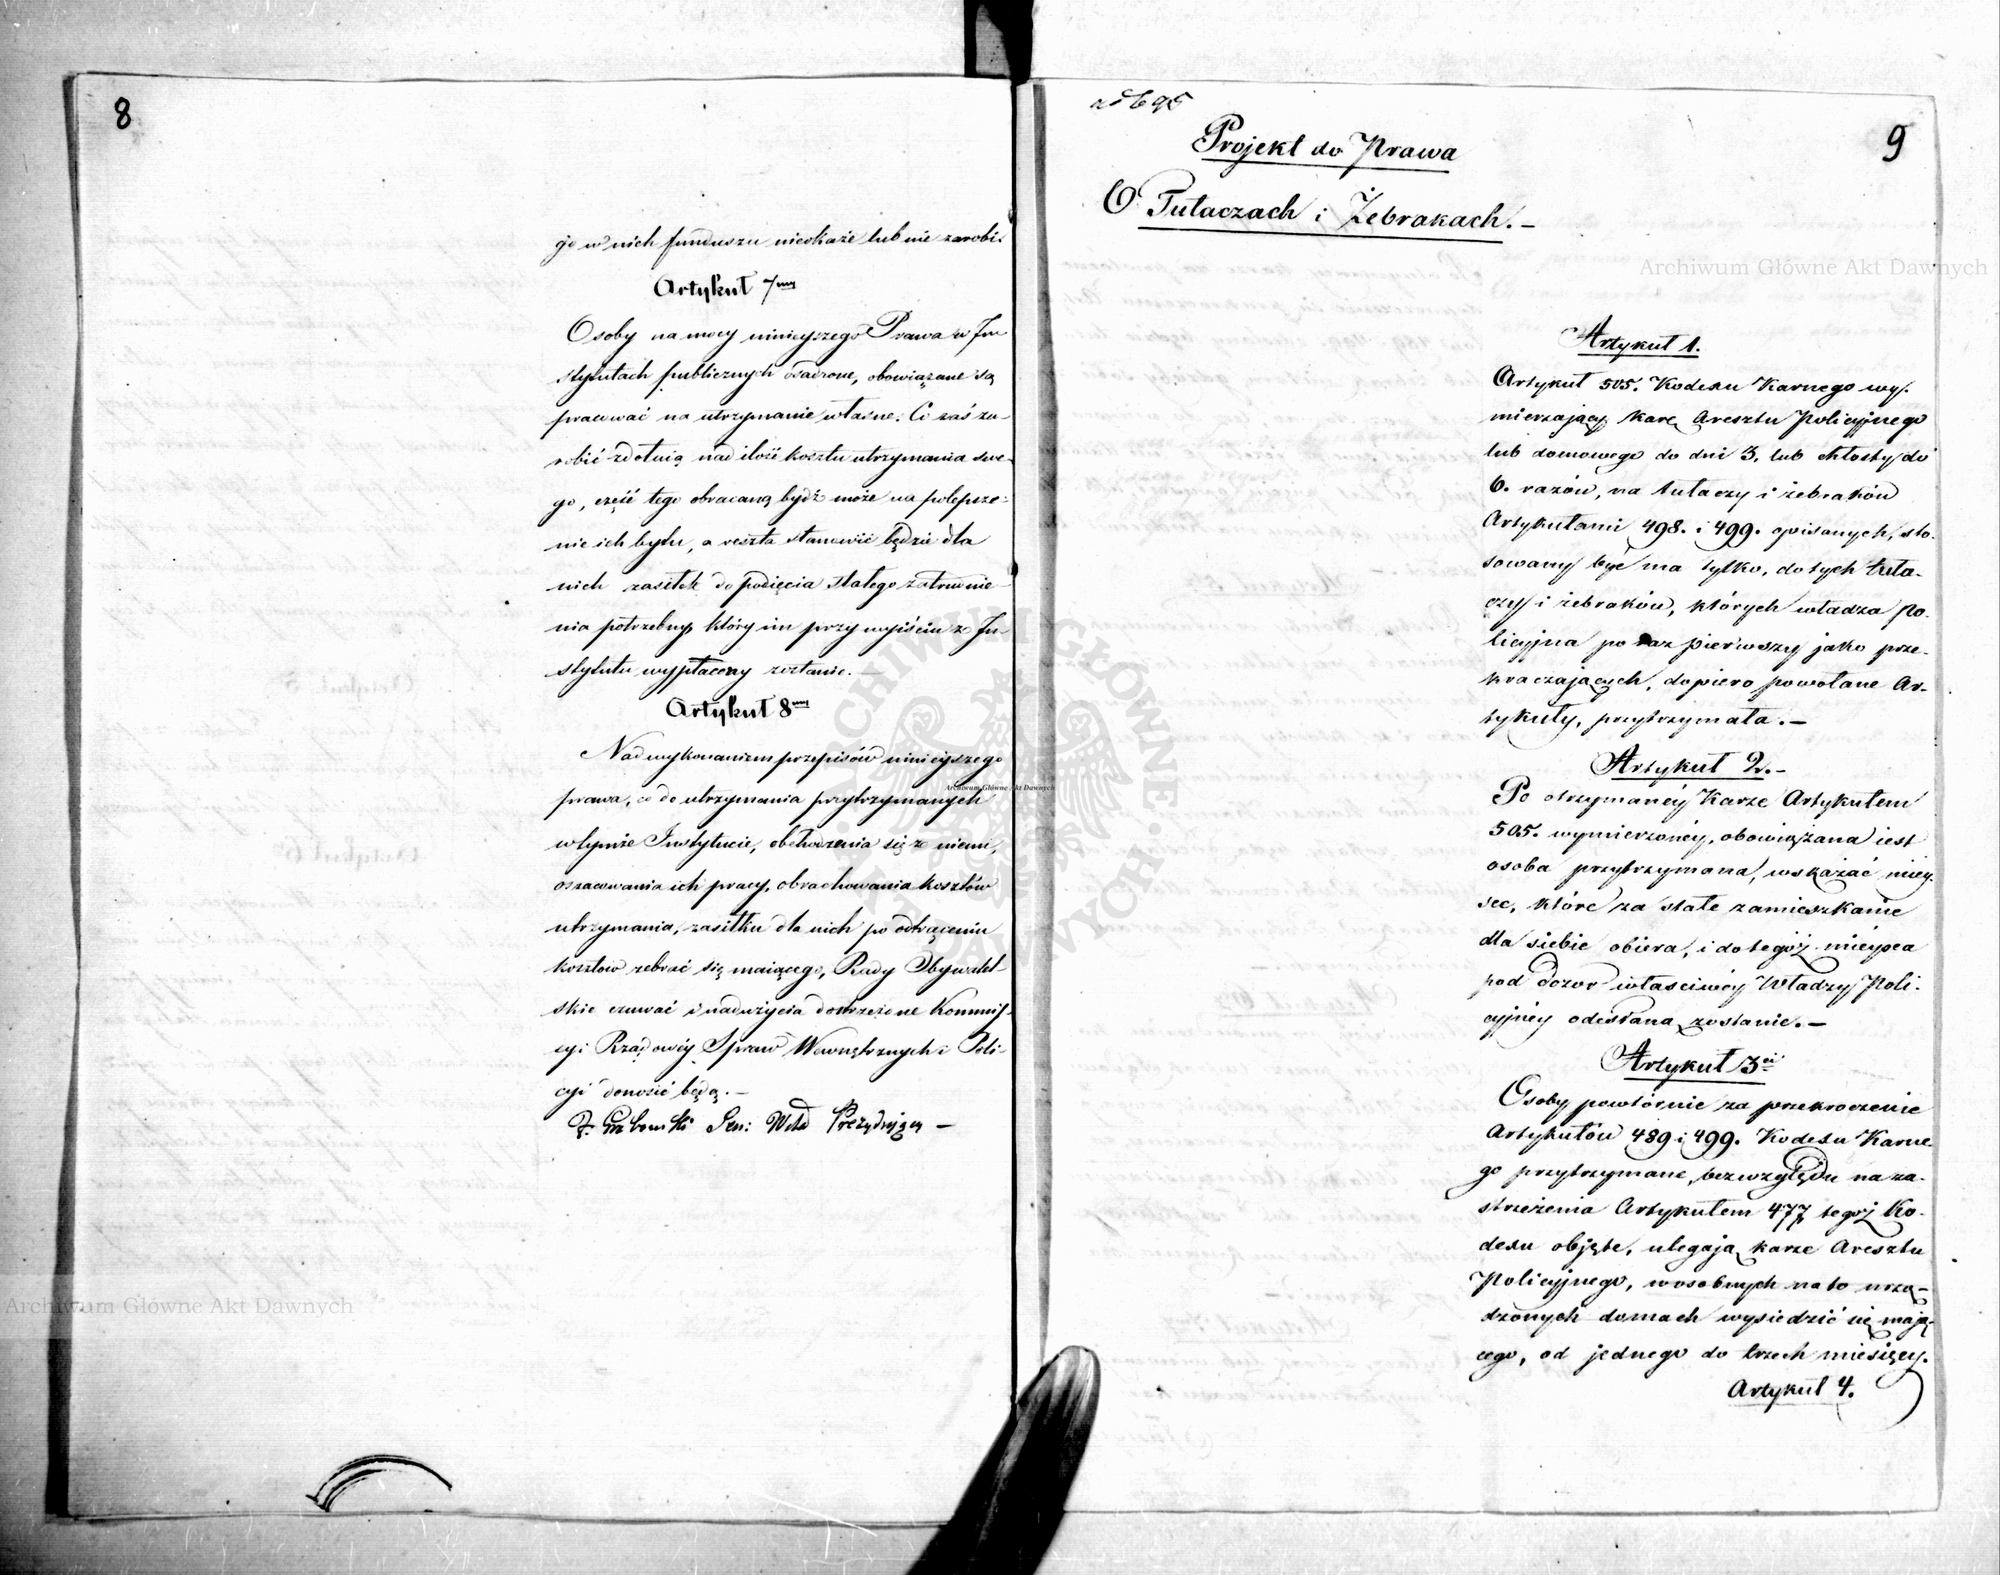 8
go w nich funduszu nieokaże lub nie zarobi.
Artykuł 7my
Osoby na mocy ninieyszego Prawa w In-
stytutach publicznych osadzone, obowiązane są
pracować na utrzymanie własne. Co zaś za-
robić zdołaią nad ilość kosztu utrzymania swe-
go, część tego obracaną bydź może na polepsze-
nie ich bytu, a reszta stanowić będzie dla
nich zasiłek do podięcia stałego zatrudnie-
nia potrzebny, który im przy wyiściu z In-
stytutu wypłacony zostanie. —
Artykuł 8my
Nad wykonaniem przepisów ninieyszego
prawa, co do utrzymania przytrzymanych
w tymże Instytucie, obchodzenia się z niemi,
oszacowania ich pracy, obrachowania kosztów
utrzymania, zasiłku dla nich po odtrąceniu
kosztów zebrać się maiącego, Rady Obywatel-
skie czuwać i nadużycia dostrzeżone Kommis-
cyi Rządowéy Spraw Wewnętrznych i Poli-
cyi donosić będą. —
Sen: Wda Prezyduiący —
ad 695
9
Projekt do Prawa
O Tułaczach i Żebrakach. —
Artykuł 1.
Artykuł 505. Kodexu Karnego wy-
mierzający karę Aresztu Policyjnego
lub domowego do dni 3. lub chłosty do
6. razów, na tułaczy i żebraków
Artykułami 498. i 499. opisanych, sto-
sowany być ma tylko, do tych tuła-
czy i żebraków, których władza po-
licyjna po raz pierwszy jako prze-
kraczających, dopiero powołane Ar-
tykuły, przytrzymała. —
Artykuł 2. —
Po otrzymanéy Karze Artykułem
505. wymierzonéy, obowiązana iest
osoba przytrzymana, wskazać miey-
sce, które za stałe zamieszkanie
dla siebie obiera, i do tegóż mieysca
pod dozor właściwéy Władzy Poli-
cyjnéy odesłana zostanie. —
Artykuł 3ci
Osoby powtórnie za przekroczenie
Artykułów 489 i 499. Kodexu Karne-
go przytrzymane, bez względu na za-
strzeżenia Artykułem 477 tegoż Ko-
dexu objęte, ulegają karze Aresztu
Policyjnego, w osobnych na to urzą-
dzonych domach wysiedzić się mają-
cego, od jednego do trzech miesięcy.
Artykuł 4.
Archiwum Główne Akt Dawnych
Archiwum Główne Akt Dawnych
Archiwum Główne Akt Dawnych
ARCHIWUM GŁÓWNE AKT DAWNYCH